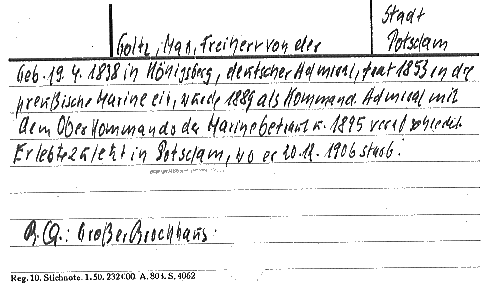 Stadt
Goltz, Max, Freiherr von der Potsdam
Geb. 19. 4. 1838 in Königsberg, deutscher Admiral, trat 1853 in die
preußische Marine ein, wurde 1889 als Kommand. Admiral mit
dem Oberkommando der Marine betraut u. 1895 verabschiedet.
Er lebte zuletzt in Potsdam, wo er 20.12. 1906 starb.
B.Q.: Großer Brockhaus.
Reg. 10. Stichnote. 1. 50. 232400. A. 804. S. 4062